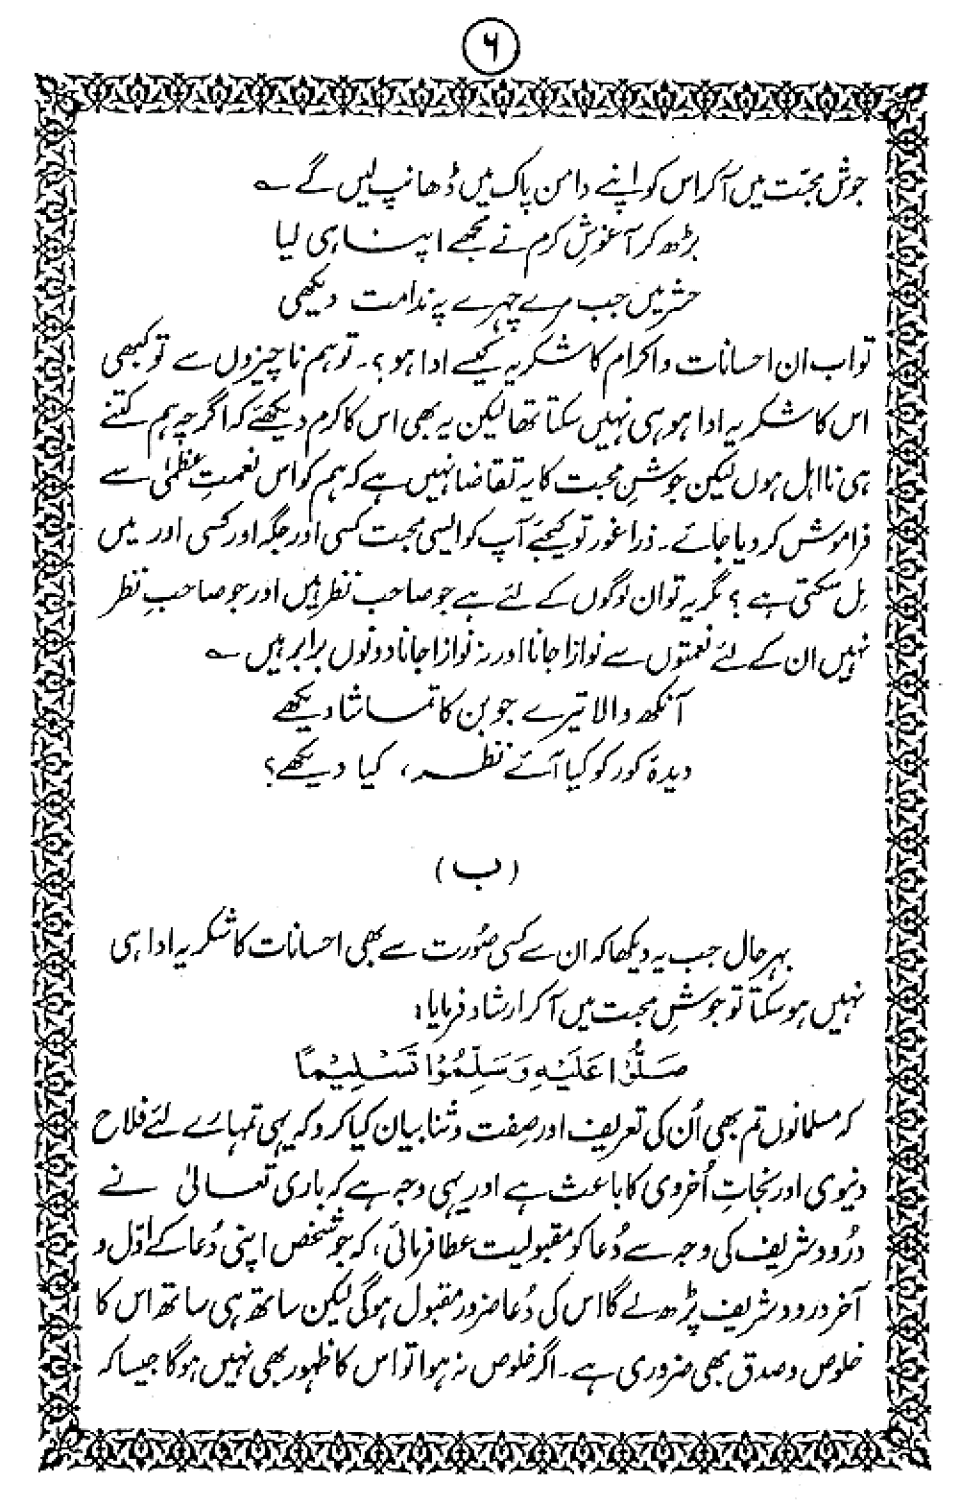 ۶
جوش محبّت میں آکر اس کو اپنے دامن پاک میں ڈھانپ لیں گے ؎
بڑھ کر آغوشِ کرم نے مجھے اپنا ہی لیا
حشر میں جب مرے چہرے پہ ندامت دیکھی
تو اب ان احسانات و اکرام کا شکریہ کیسے ادا ہو؟۔ تو ہم ناچیزوں سے تو کبھی
اس کا شکریہ ادا ہو ہی نہیں سکتا تھا لیکن یہ بھی اس کا کرم دیکھئے کہ اگرچہ ہم کتنے
ہی نااہل ہوں لیکن جوشِ محبت کا یہ تقاضا نہیں ہے کہ ہم کو اس نعمتِ عظمٰی سے
فراموش کر دیا جائے۔ ذرا غور تو کیجئے آپ کو ایسی محبت کسی اور جگہ اور کسی اور میں
مِل سکتی ہے؟ مگر یہ تو ان لوگوں کے لئے ہے جو صاحب نظر ہیں اور جو صاحبِ نظر
نہیں ان کے لئے نعمتوں سے نوازا جانا اور نہ نوازا جانا دونوں برابر ہیں ؎
آنکھ والا تیرے جوبن کا تماشا دیکھے
دیدۂ کور کو کیا آئے نظر، کیا دیکھے؟
(ب)
بہر حال جب یہ دیکھا کہ ان سے کسی صُورت سے بھی احسانات کا شکریہ ادا ہی
نہیں ہو سکتا تو جوشِ محبت میں آکر ارشاد فرمایا:
صَلُّوْا عَلَيْهِ وَسَلِّمُوْا تَسْلِيْمًا
کہ مسلمانوں تم بھی اُن کی تعریف اور صِفت و ثنا بیان کیا کرو کہ یہی تمہارے لئے فلاح
دنیوی اور نجاتِ اُخروی کا باعث ہے اور یہی وجہ ہے کہ باری تعالیٰ نے
درُود شریف کی وجہ سے دُعا کو مقبولیت عطا فرمائی، کہ جو شخص اپنی دُعا کے اوّل و
آخر درود شریف پڑھ لے گا اس کی دُعا ضرور مقبول ہوگی لیکن ساتھ ہی ساتھ اس کا
خلوص و صدق بھی ضروری ہے۔ اگر خلوص نہ ہوا تو اس کا ظہور بھی نہیں ہوگا جیسا کہ